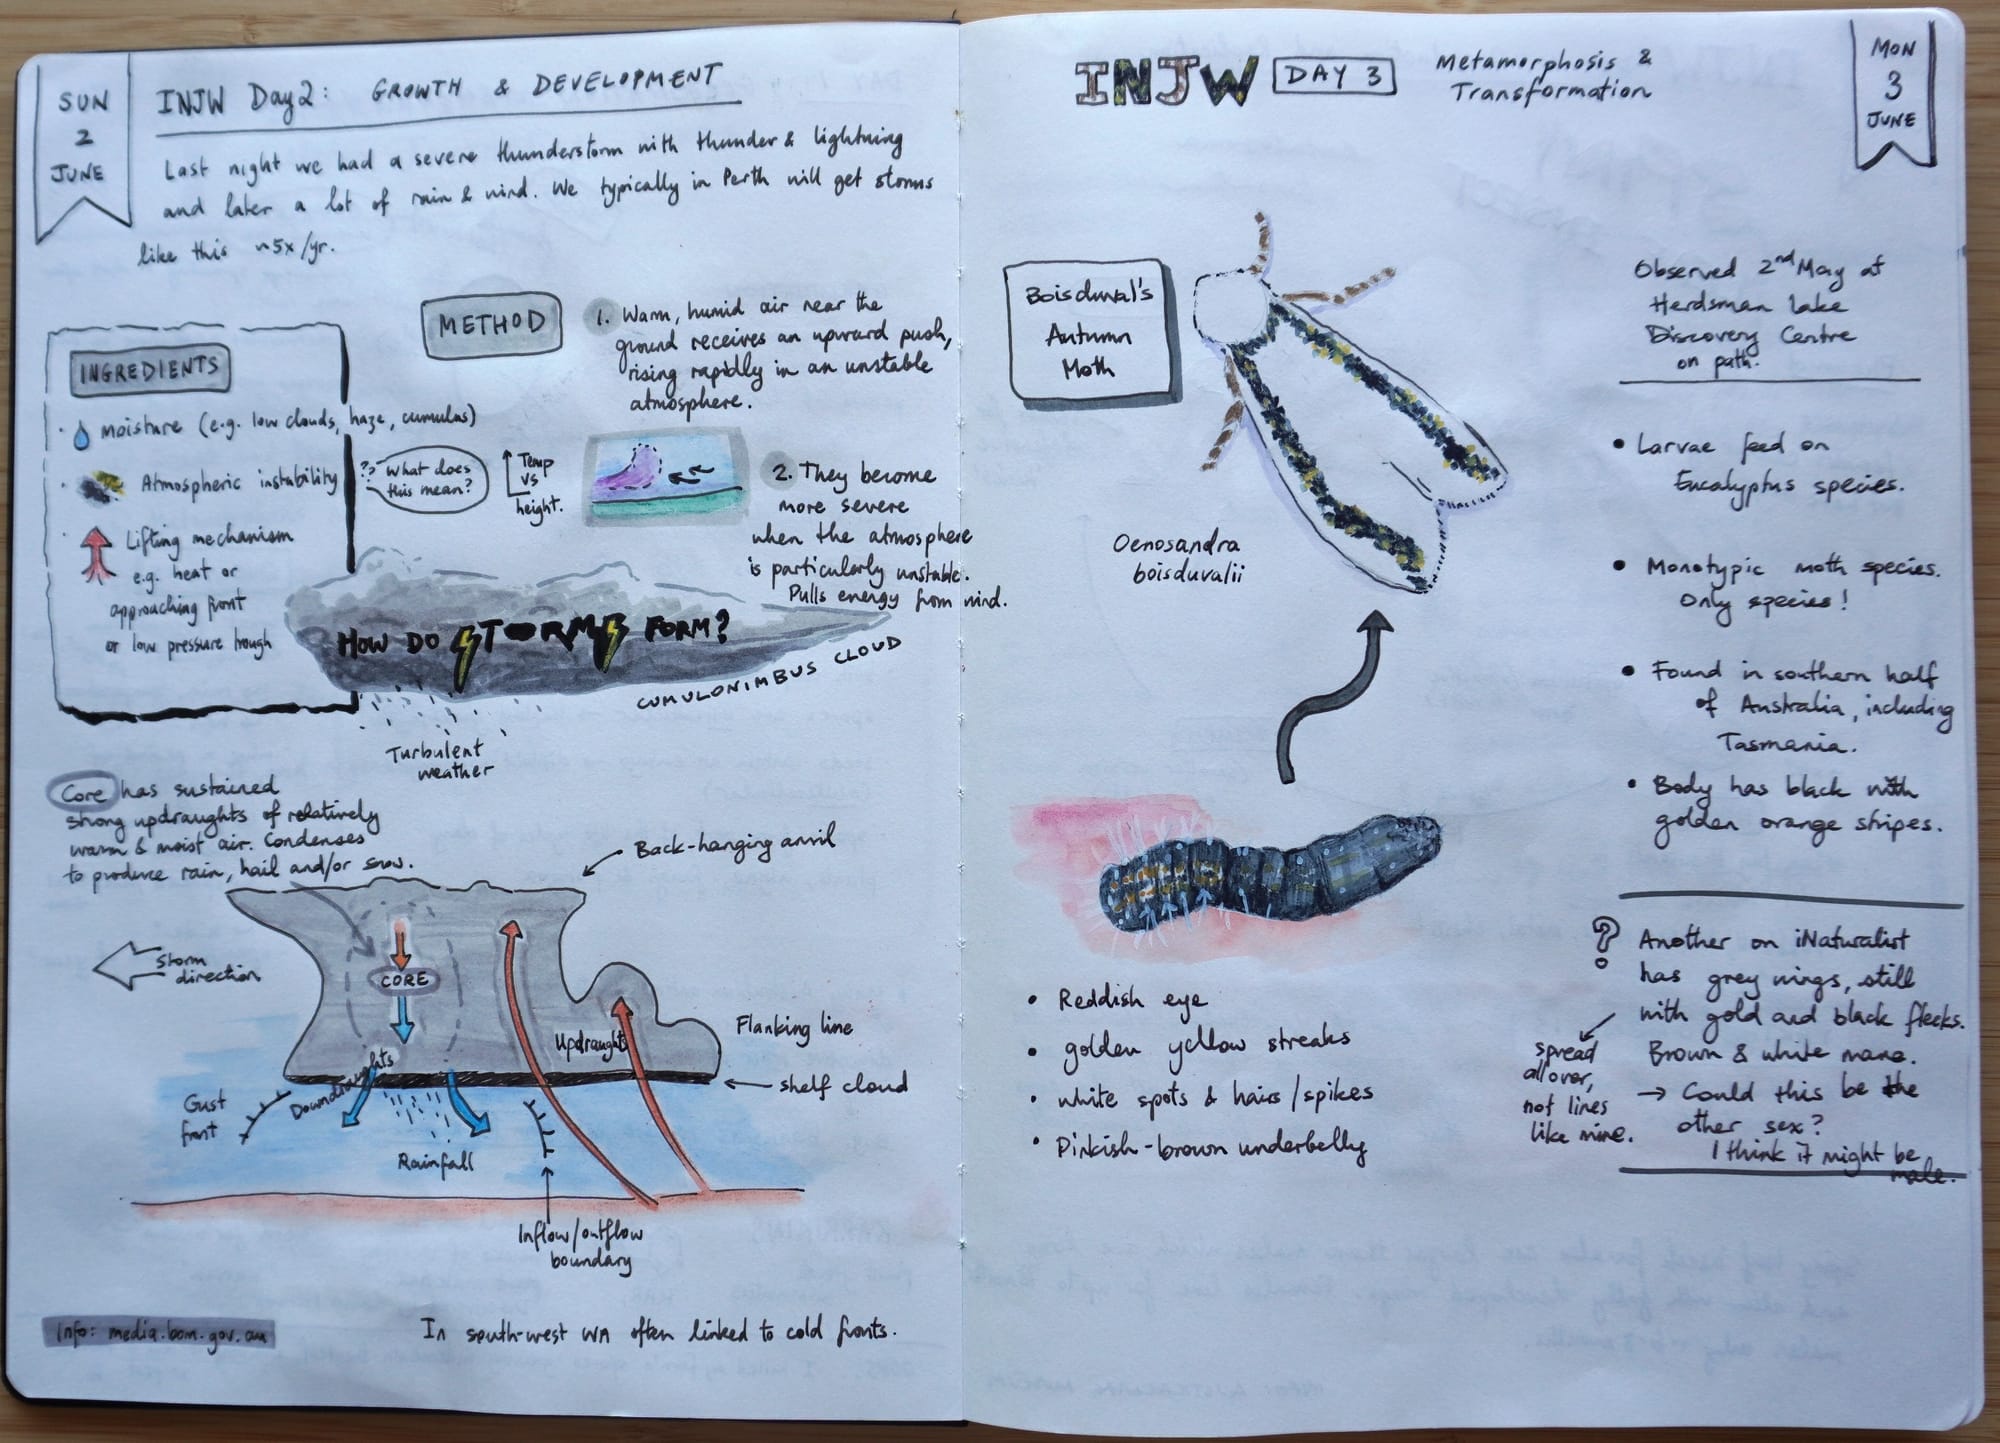 SUN
2
JUNE
INJW Day 2: GROWTH & DEVELOPMENT
Last night we had a severe thunderstorm with thunder & lightning
and later a lot of rain & wind. We typically in Perth will get storms
like this ~5x/yr.
INGREDIENTS
· moisture (e.g. low clouds, haze, cumulus)
· Atmospheric instability
?? What does
this mean?
Temp
vs
height.
· Lifting mechanism
e.g. heat or
approaching front
or low pressure trough
METHOD
1. Warm, humid air near the
ground receives an upward push,
rising rapidly in an unstable
atmosphere.
2. They become
more severe
when the atmosphere
is particularly unstable.
Pulls energy from wind.
HOW DO STORMS FORM?
CUMULONIMBUS CLOUD
Turbulent
weather
Core has sustained
strong updraughts of relatively
warm & moist air. Condenses
to produce rain, hail and/or snow.
Back-hanging anvil
Storm
direction
CORE
Updraughts
Flanking line
shelf cloud
Downdraughts
Gust
front
Rainfall
Inflow/outflow
boundary
Info: media.bom.gov.au
In south-west WA often linked to cold fronts.
INJW DAY 3 Metamorphosis &
Transformation
MON
3
JUNE
Boisduval's
Autumn
Moth
Oenosandra
boisduvalii
Observed 2nd May at
Herdsman Lake
Discovery Centre
on path.
• Larvae feed on
Eucalyptus species.
• Monotypic moth species.
Only species!
• Found in southern half
of Australia, including
Tasmania.
• Body has black with
golden orange stripes.
• Reddish eye
• golden yellow streaks
• white spots & hairs/spikes
• Pinkish-brown underbelly
? Another on iNaturalist
has grey wings, still
with gold and black flecks.
Brown & white mane.
→ Could this be the
other sex?
I think it might be
male.
spread
all over,
not lines
like mine.